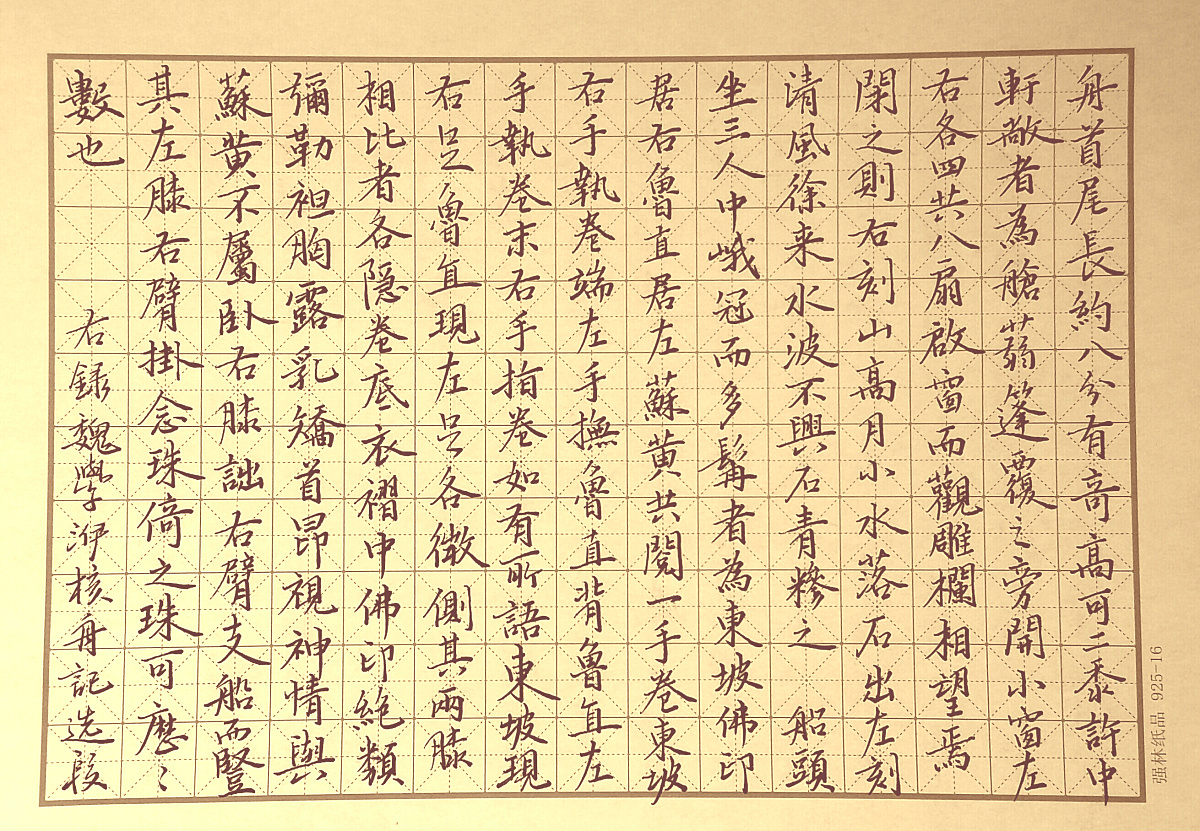 舟首尾長約八分有奇高可二黍許中
軒敞者為艙蒻篷覆之旁開小窗左
右各四共八扇啟窗而觀雕欄相望焉
閑之則右刻山高月小水落石出左刻
清風徐来水波不興石青糝之 船頭
坐三人中峨冠而多髯者為東坡佛印
居右魯直居左蘇黄共閱一手卷東坡
右手執卷端左手撫魯直背魯直左
手執卷末右手指卷如有所語東坡現
右足魯直現左足各微側其兩膝
相比者各隐卷底衣褶中佛印絶類
彌勒袒胸露乳矯首昂視神情與
蘇黄不屬卧右膝詘右臂支船而豎
其左膝右臂掛念珠倚之珠可歷〻
數也 右録魏學洢核舟記选段
强林纸品 925-16